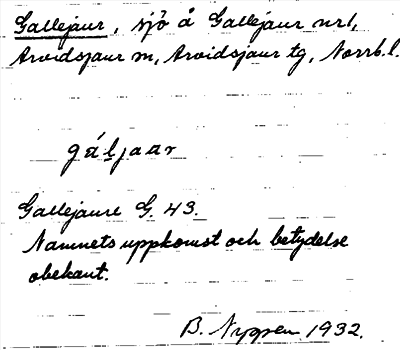 Gallejaur, sjö å Gallejaur nrl,
Arvidsjaur sn, Arvidsjaur tg, Norrb. l.
gáljaar
Gallejaure G. 43.
Namnets uppkomst och betydelse
obekant.
B. Nyman 1932.